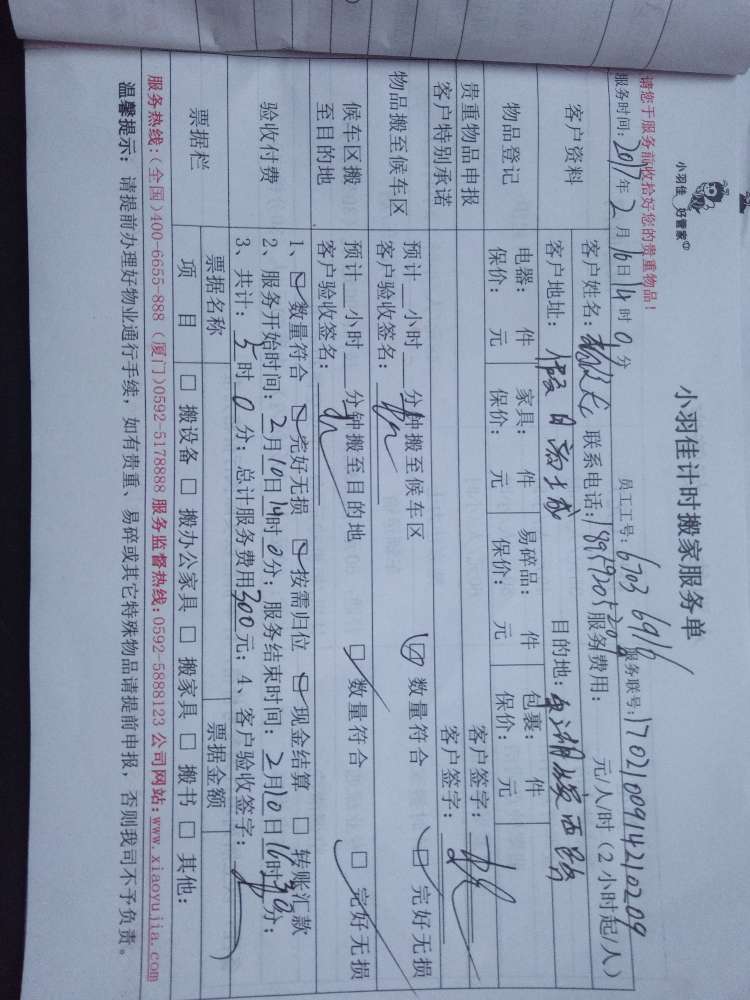 小羽佳 好管家
小羽佳计时搬家服务单
请您于服务前收拾好您的贵重物品!
员工工号: 6703 6916 服务联号: 1702100914210209
服务时间: 2017年2月16日14时0分
客户资料
客户姓名: 联系电话: 服务费用: 元/人/时(2小时起/人)
客户地址: 假日商城 目的地: 西路
物品登记
电器: 件 家具: 件 易碎品: 件 包裹: 件
保价: 元 保价: 元 保价: 元 保价: 元
贵重物品申报 客户签字:
客户特别承诺 客户签字:
物品搬至候车区
预计 小时 分钟搬至候车区 数量符合 完好无损
客户验收签名:
候车区搬至目的地
预计 小时 分钟搬至目的地 数量符合 完好无损
客户验收签名:
验收付费
1、数量符合 完好无损 按需归位 现金结算 转账汇款
2、服务开始时间: 2月10日14时0分; 服务结束时间: 2月10日16时30分;
3、共计: 5时0分; 总计服务费用300元; 4、客户验收签字:
票据栏
票据名称 票据金额
项目 搬设备 搬办公家具 搬家具 搬书 其他:
服务热线:(全国)400-6655-888 (厦门)0592-5178888 服务监督热线:0592-5888123 公司网站:www.xiaoyujia.com
温馨提示: 请提前办理好物业通行手续, 如有贵重、易碎或其它特殊物品请提前申报, 否则我司不予负责。